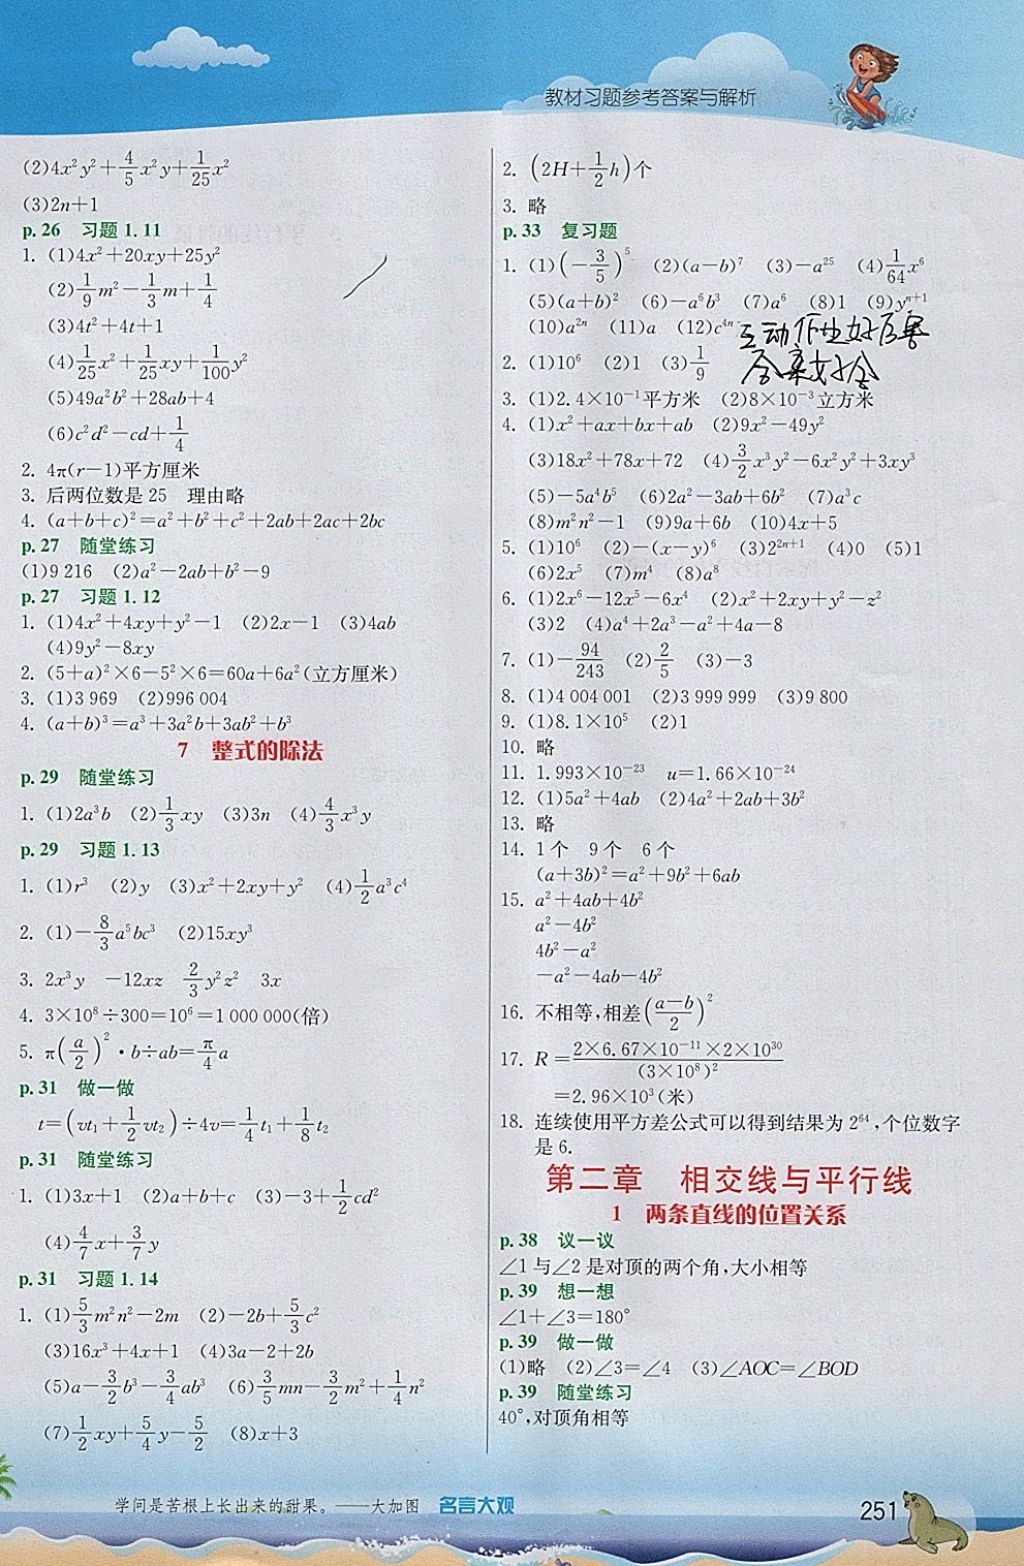 教材习题参考答案与解析
(2)4x²y²+4/5x²y+1/25x²
(3)2n+1
p.26 习题1.11
1. (1)4x²+20xy+25y²
(2)1/9m²-1/3m+1/4
(3)4t²+4t+1
(4)1/25x²+1/25xy+1/100y²
(5)49a²b²+28ab+4
(6)c²d²-cd+1/4
2. 4π(r-1)平方厘米
3. 后两位数是25 理由略
4. (a+b+c)²=a²+b²+c²+2ab+2ac+2bc
p.27 随堂练习
(1)9 216 (2)a²-2ab+b²-9
p.27 习题1.12
1. (1)4x²+4xy+y²-1 (2)2x-1 (3)4ab
(4)9y²-8xy
2. (5+a)²×6-5²×6=60a+6a²(立方厘米)
3. (1)3 969 (2)996 004
4. (a+b)³=a³+3a²b+3ab²+b³
7 整式的除法
p.29 随堂练习
1. (1)2a³b (2)1/3xy (3)3n (4)4/3x³y
p.29 习题1.13
1. (1)r³ (2)y (3)x²+2xy+y² (4)1/2a³c⁴
2. (1)-8/3a⁵bc³ (2)15xy³
3. 2x³y -12xz 2/3y²z² 3x
4. 3×10⁸÷300=10⁶=1 000 000(倍)
5. π(a/2)²·b÷ab=π/4a
p.31 做一做
t=(vt₁+1/2vt₂)÷4v=1/4t₁+1/8t₂
p.31 随堂练习
1. (1)3x+1 (2)a+b+c (3)-3+1/2cd²
(4)4/7x+3/7y
p.31 习题1.14
1. (1)5/3m²n²-2m (2)-2b+5/3c²
(3)16x³+4x+1 (4)3a-2+2b
(5)a-3/2b³-3/4ab³ (6)3/5mn-3/2m²+1/4n²
(7)1/2xy+5/4y-5/2 (8)x+3
2. (2H+1/2h)个
3. 略
p.33 复习题
1. (1)(-3/5)⁵ (2)(a-b)⁷ (3)-a²⁵ (4)1/64x⁶
(5)(a+b)² (6)-a⁶b³ (7)a⁶ (8)1 (9)yⁿ⁺¹
(10)a²ⁿ (11)a (12)c⁴ⁿ
互动作业好厉害
答案好全
2. (1)10⁶ (2)1 (3)1/9
3. (1)2.4×10⁻¹平方米 (2)8×10⁻³立方米
4. (1)x²+ax+bx+ab (2)9x²-49y²
(3)18x²+78x+72 (4)3/2x³y²-6x²y²+3xy³
(5)-5a⁴b⁵ (6)2a²-3ab+6b² (7)a³c
(8)m²n²-1 (9)9a+6b (10)4x+5
5. (1)10⁶ (2)-(x-y)⁶ (3)2²ⁿ⁺¹ (4)0 (5)1
(6)2x⁵ (7)m⁴ (8)a⁸
6. (1)2x⁶-12x⁵-6x⁴ (2)x²+2xy+y²-z²
(3)2 (4)a⁴+2a³-a²+4a-8
7. (1)-94/243 (2)2/5 (3)-3
8. (1)4 004 001 (2)3 999 999 (3)9 800
9. (1)8.1×10⁵ (2)1
10. 略
11. 1.993×10⁻²³ u=1.66×10⁻²⁴
12. (1)5a²+4ab (2)4a²+2ab+3b²
13. 略
14. 1个 9个 6个
(a+3b)²=a²+9b²+6ab
15. a²+4ab+4b²
a²-4b²
4b²-a²
-a²-4ab-4b²
16. 不相等,相差((a-b)/2)²
17. R=(2×6.67×10⁻¹¹×2×10³⁰)/(3×10⁸)²
=2.96×10³(米)
18. 连续使用平方差公式可以得到结果为2⁶⁴,个位数字
是6.
第二章 相交线与平行线
1 两条直线的位置关系
p.38 议一议
∠1与∠2是对顶的两个角,大小相等
p.39 想一想
∠1+∠3=180°
p.39 做一做
(1)略 (2)∠3=∠4 (3)∠AOC=∠BOD
p.39 随堂练习
40°,对顶角相等
学问是苦根上长出来的甜果。——大加图 名言大观
251